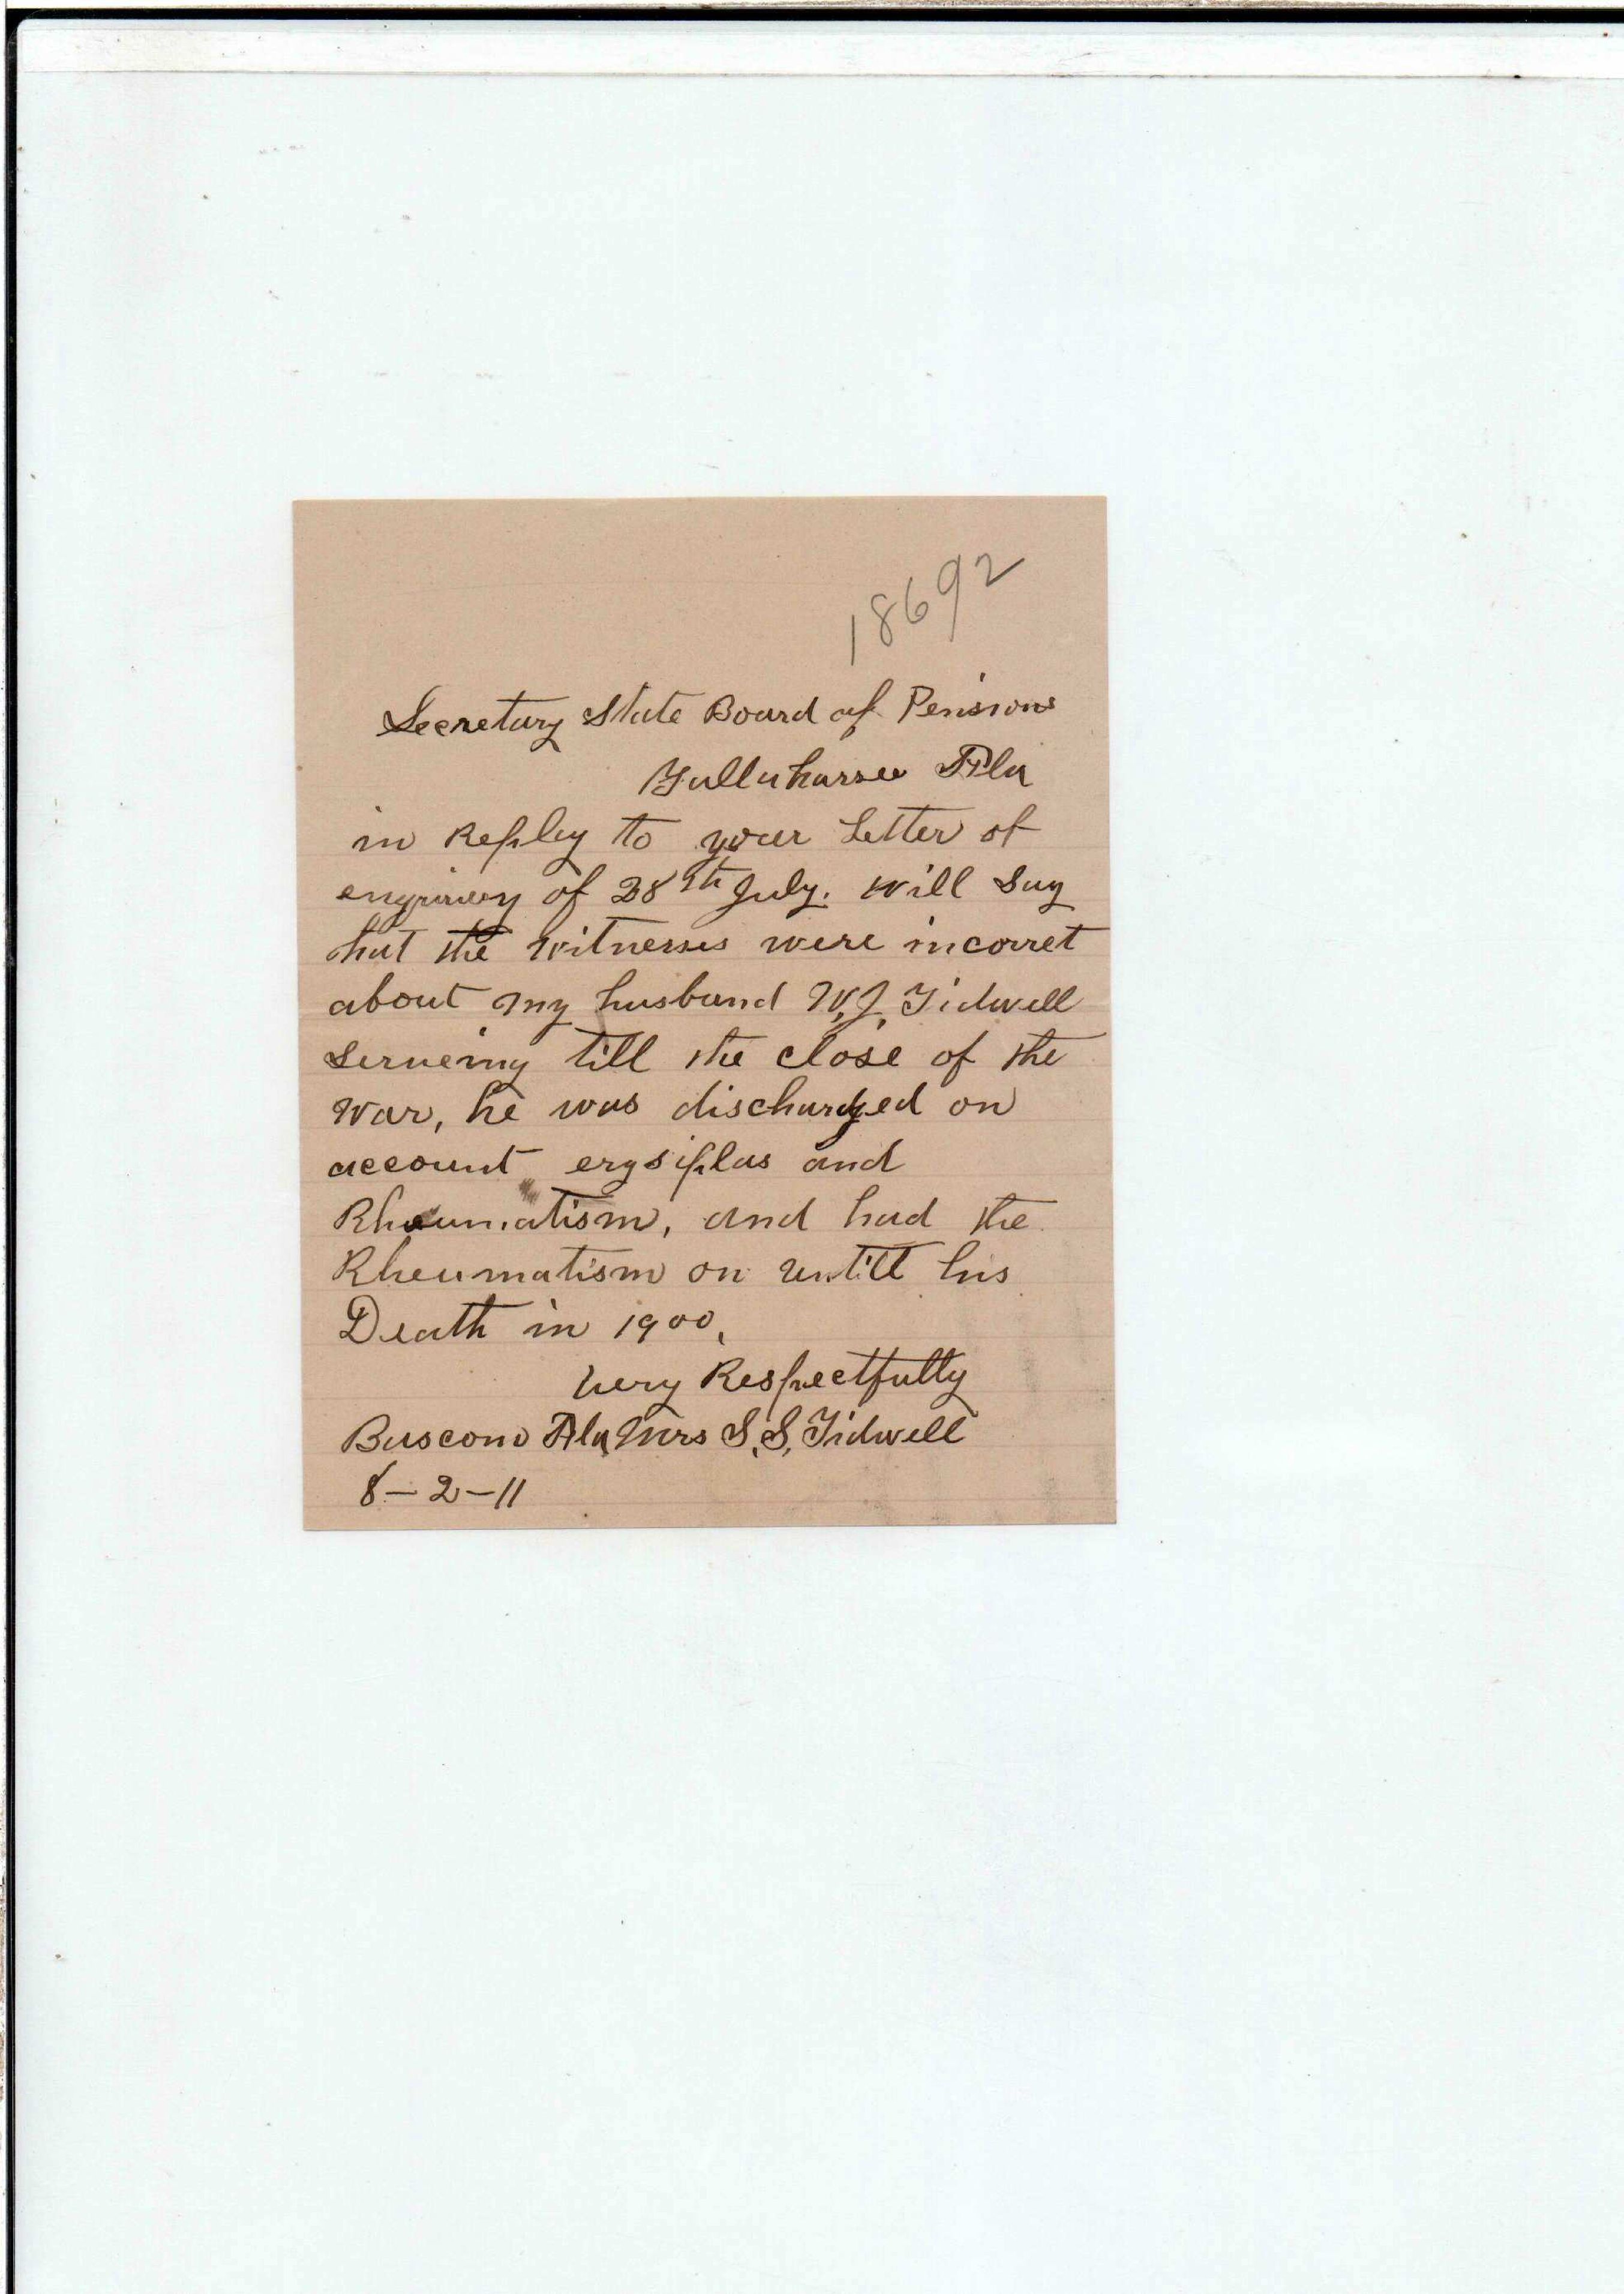 18692
Secretary State Board of Pensions
Tallahassee Fla
in Reply to your Letter of
enquirey of 28th July. will Say
that the witnesses were incorret
about my husband W.J. Tidwell
serveing till the close of the
war, he was discharged on
account erysiplas and
Rheumatism, and had the
Rheumatism on untill his
Death in 1900,
very Respectfully
Bascom Fla, Mrs S.S. Tidwell
8-2-11